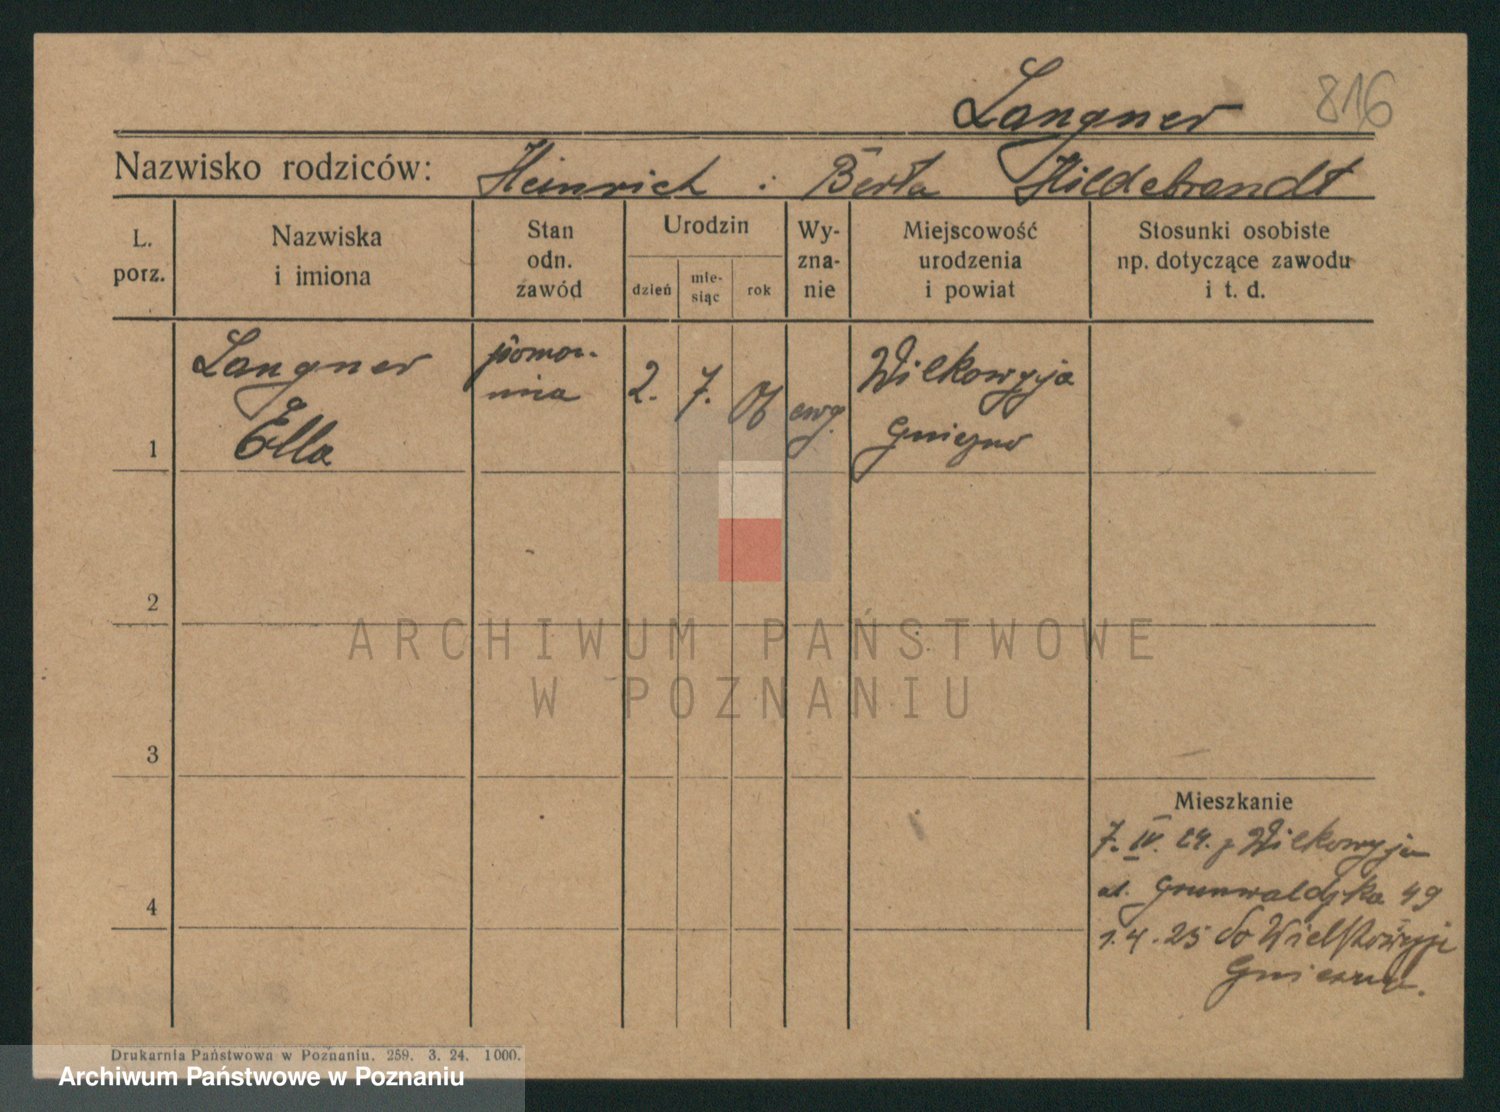 Langner 816
Nazwisko rodziców: Heinrich : Berta Hildebrandt
L. porz.
Nazwiska i imiona
Stan odn. zawód
Urodzin
dzień
mie- siąc
rok
Wy- zna- nie
Miejscowość urodzenia i powiat
Stosunki osobiste np. dotyczące zawodu i t. d.
1
Langner
Ella
2. 7. 06 ewg.
Wilkowyja
Gniezno
2
3
4
ARCHIWUM PAŃSTWOWE
W POZNANIU
Mieszkanie
7. IV. 24. z Wilkowyja
ul. Grunwaldzka 49
1.4.25 do Wielkowyji
Gniezna.
Drukarnia Państwowa w Poznaniu. 259. 3. 24. 1000.
Archiwum Państwowe w Poznaniu